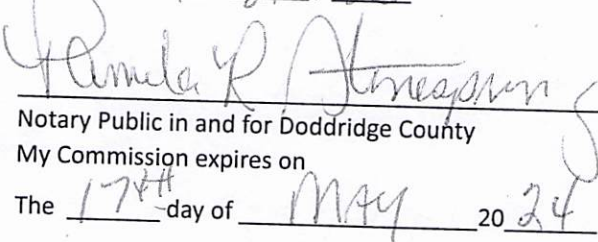 Pamela R Stonespring
Notary Public in and for Doddridge County
My Commission expires on
The 17th day of MAY 2024